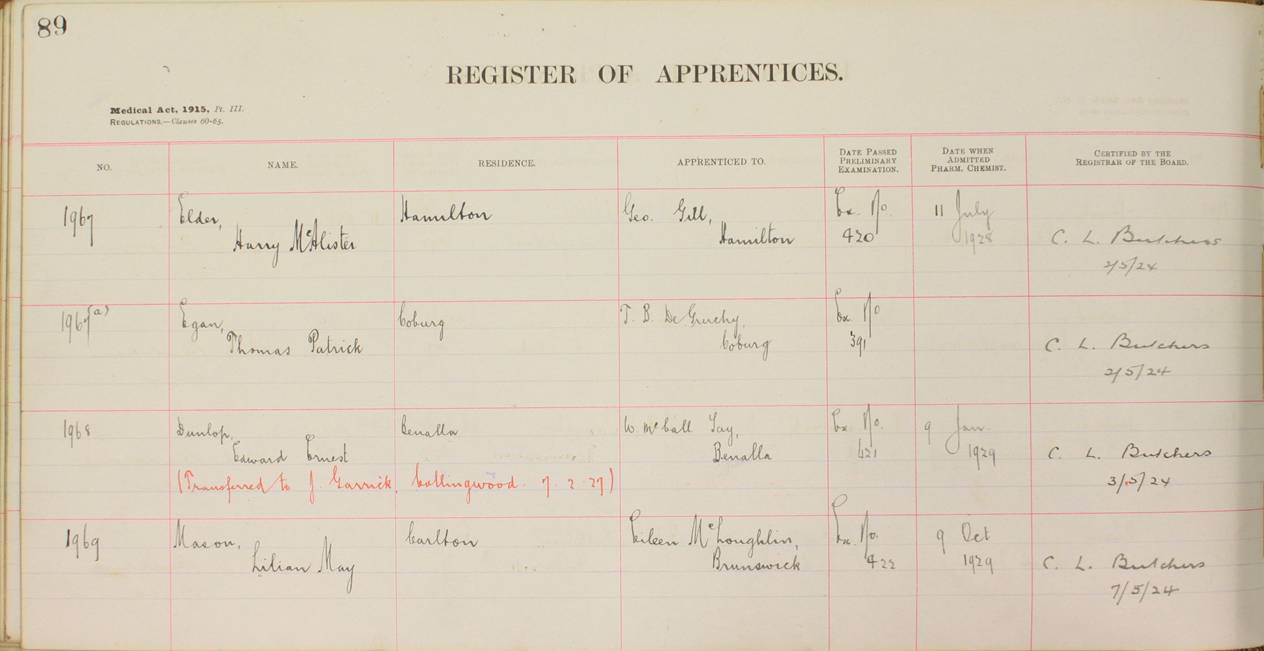 89
REGISTER OF APPRENTICES.
Medical Act, 1915, Pt. III.
REGULATIONS.—Clauses 60-65.
NO.
NAME.
RESIDENCE.
APPRENTICED TO.
DATE PASSED
PRELIMINARY
EXAMINATION.
DATE WHEN
ADMITTED
PHARM. CHEMIST.
CERTIFIED BY THE
REGISTRAR OF THE BOARD.
1967
Elder,
Harry McAlister
Hamilton
Geo. Gill,
Hamilton
Ex. No.
420
11 July
1928
C. L. Butchers
2/5/24
1967(a)
Egan,
Thomas Patrick
Coburg
T. B. De Gruchy,
Coburg
Ex. No
391
C. L. Butchers
2/5/24
1968
Dunlop,
Edward Ernest
Benalla
W. McCall Say,
Benalla
Ex. No.
421
9 Jan.
1929
C. L. Butchers
3/5/24
(Transferred to J. Garrick, Collingwood. 7. 2. 27)
1969
Mason,
Lilian May
Carlton
Eileen McLoughlin,
Brunswick
Ex. No.
422
9 Oct
1929
C. L. Butchers
7/5/24